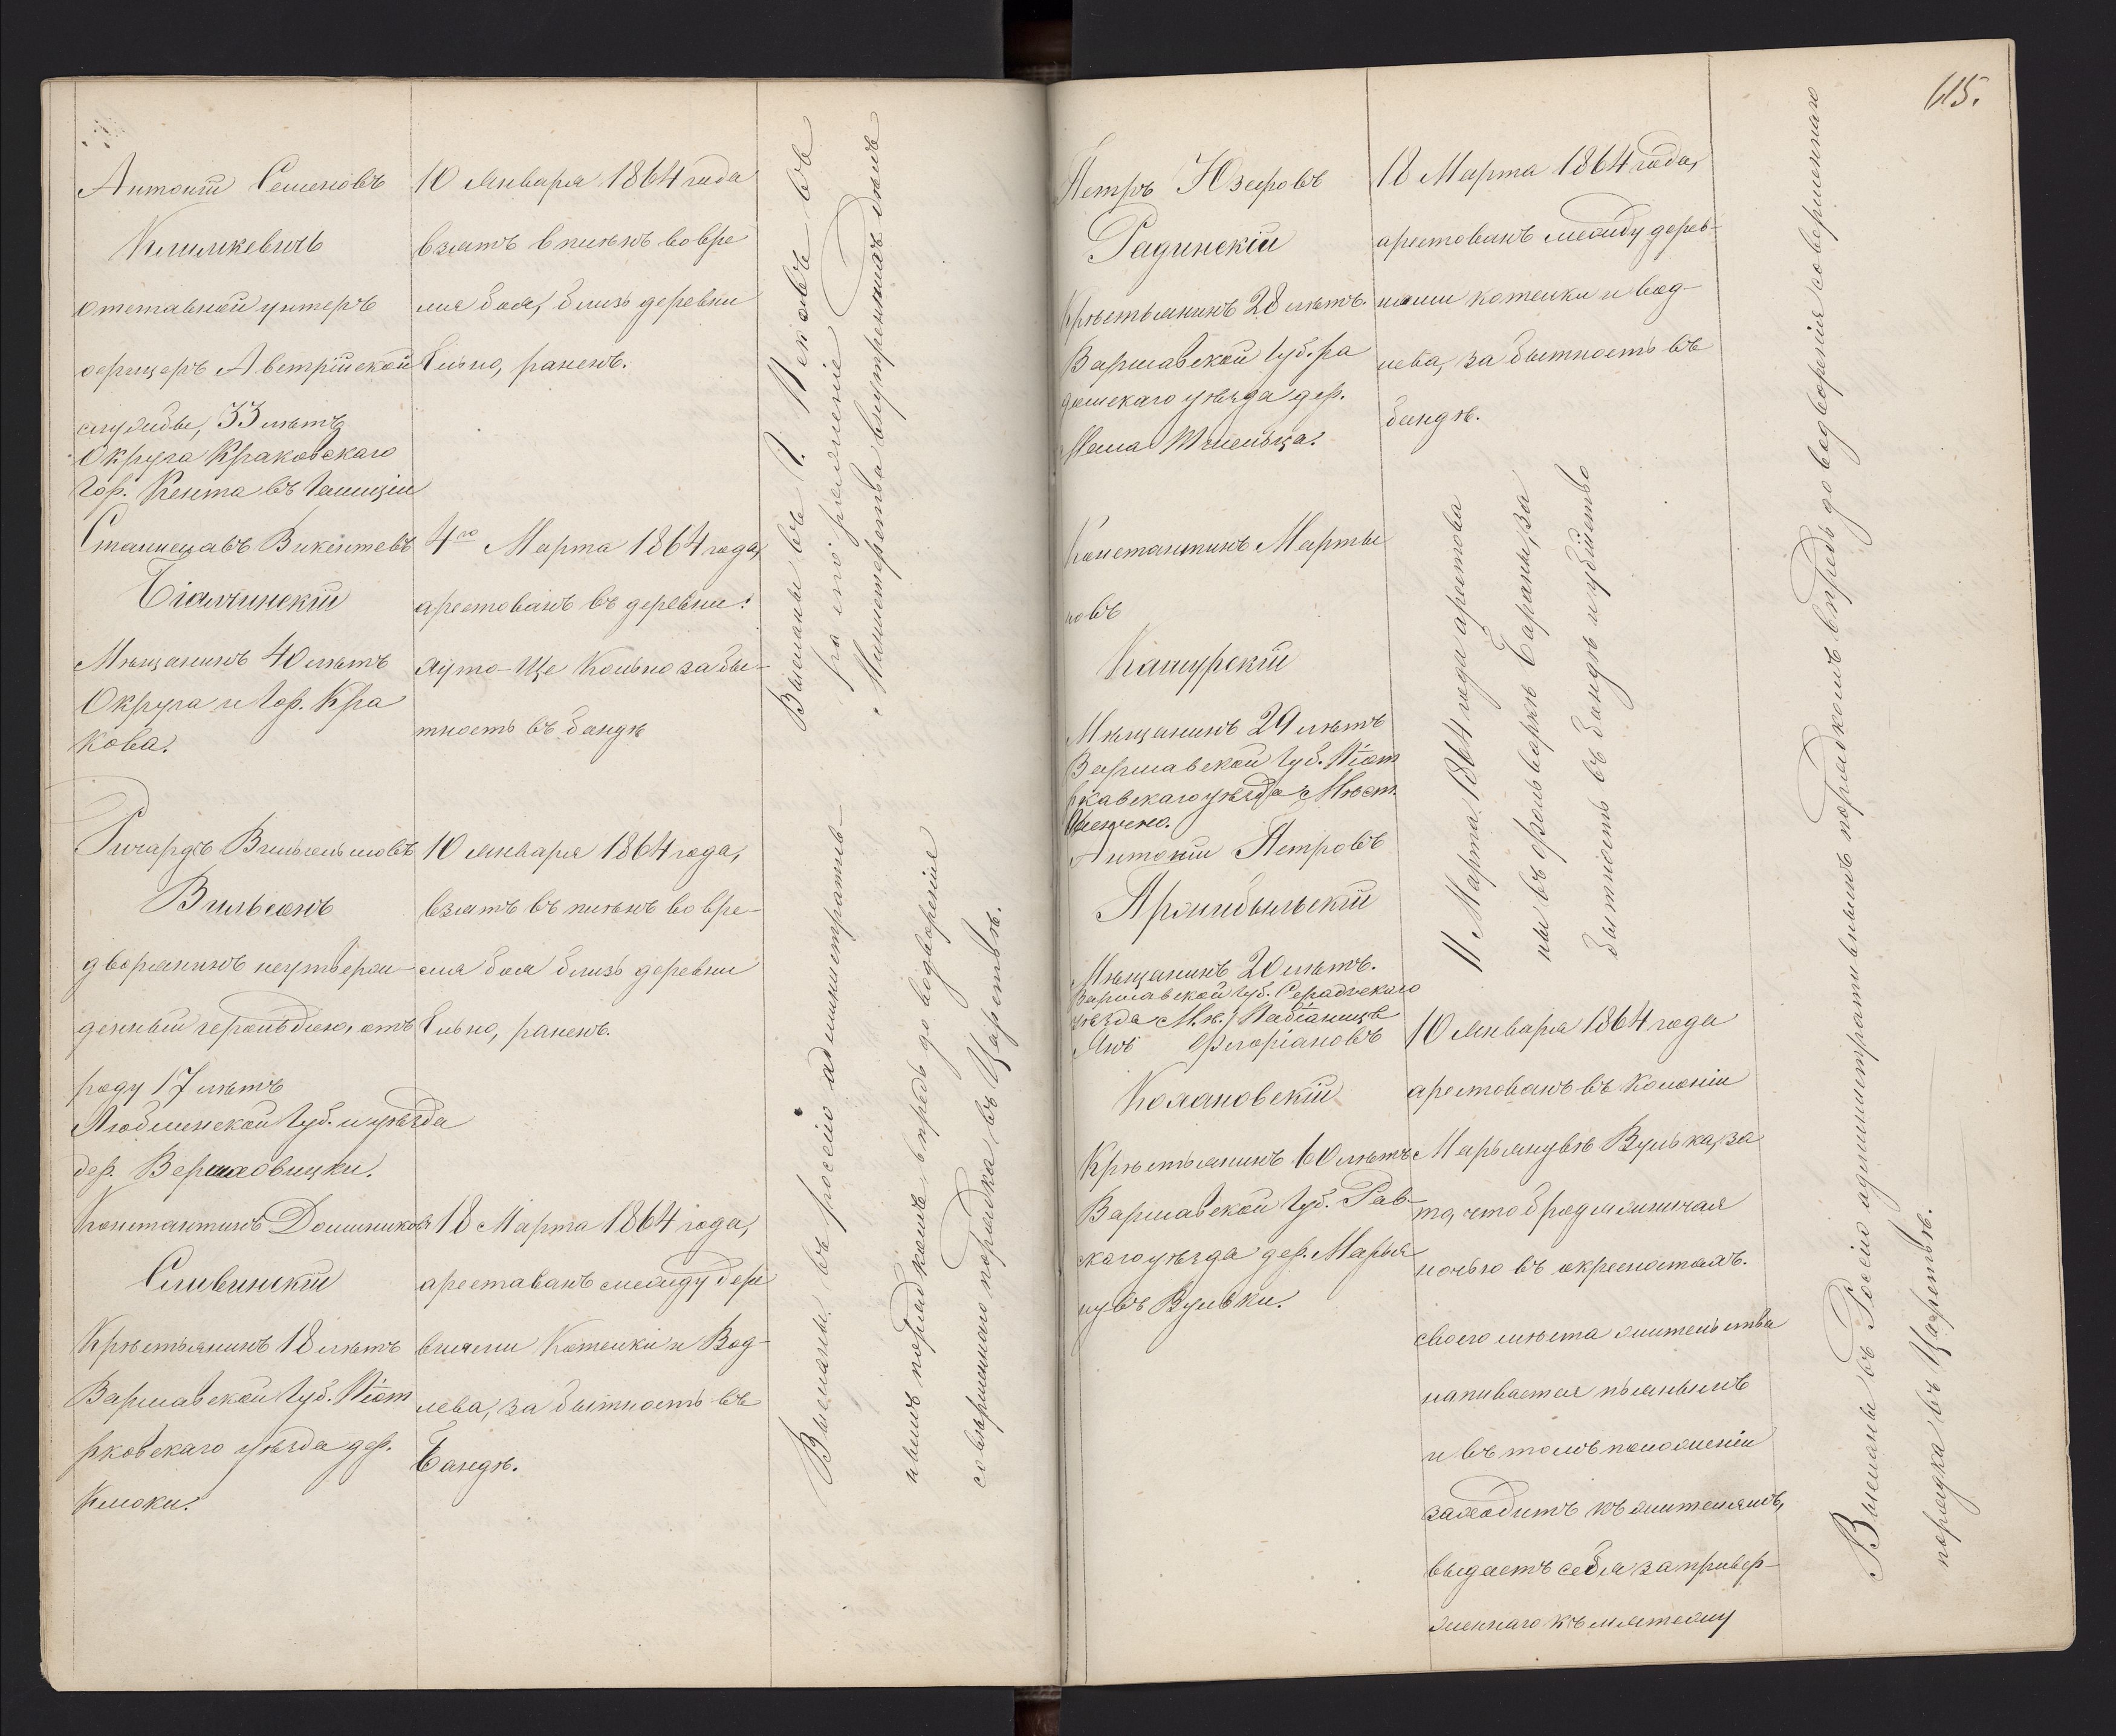 Антоній Семеновъ
Климкевичъ
отставной унтеръ
офицеръ Австрійской
службы, 33 лѣтъ
Округа Краковскаго
Гор. Кента въ Галиціи
10 Января 1864 года
взятъ в плѣнъ во вре
мя боя, близь деревни
Цильно, раненъ.
Станиславъ Викентьевъ
Бялчинскій
Мѣщанинъ 40 лѣтъ
Округа и Гор. Кра
кова.
4го Марта 1864 года,
арестованъ въ деревни:
Кольно за бы-
тность въ бандѣ
Высланы въ Г. Псковъ въ
Министерства внутреннихъ дѣлъ
Ричардъ Вильгельмовъ
Вильсонъ
дворянинъ неутверж-
денный герольдіею, отъ
роду 17 лѣтъ
Люблинской Губ. и уѣзда
дер. Вершховицки.
10 Января 1864 года,
взятъ въ плѣнъ во вре-
мя боя близь деревни
Цильно, раненъ.
Константинъ Доминиковъ
Сливинскій
Крѣстьянинъ 18 лѣтъ
Варшавской Губ. Піот
рковскаго уѣзда дер.
Клюки.
18 Марта 1864 года,
арестованъ между дере
внями Котелки и Вод-
лева, за бытность въ
Бандѣ.
Высланы въ россію административ-
нымъ порядкомъ впредь до водворенія
совершеннаго порядка въ Царствѣ.
615.
Петръ Юзефовъ
Радинскій
Крѣстьянинъ 28 лѣтъ.
Варшавской Губ. Ра
домскаго уѣзда дер.
18 Марта 1864 года,
арестованъ между дерев-
нями котелки и вод-
лева, за бытность въ
бандѣ.
Константинъ Марты
новъ
Кашурскій
Мѣщанинъ 29 лѣтъ
Варшавской Губ. Піот
ркавскаго уѣзда Мѣст.
Антоній Петровъ
Пржибыльскій
Мѣщанинъ 20 лѣтъ.
Варшавской Губ. Серадзскаго
уѣзда М. Пабіаницъ
11 Марта 1864 года арестова
ны въ фольваркѣ Бараны, за
бытность въ бандѣ и убійство
Янъ Флоріановъ
Колановскій
Крѣстьянинъ 60 лѣтъ
Варшавской Губ. Рав-
скаго уѣзда дер. Марья
нувъ Вульки.
10 Января 1864 года
арестованъ въ колоніи
Марьянувѣ Вулька, за
то, что бродяжничая
ночью въ окресностяхъ.
своего мѣста жительства
напивается пьянымъ
и въ томъ положеніи
заходитъ къ жителямъ,
выдаетъ себя за привер-
женнаго къ мятежу
Высланы въ Россію административнымъ порядкомъ впредь до водворенія совершеннаго
порядка въ Царствѣ.